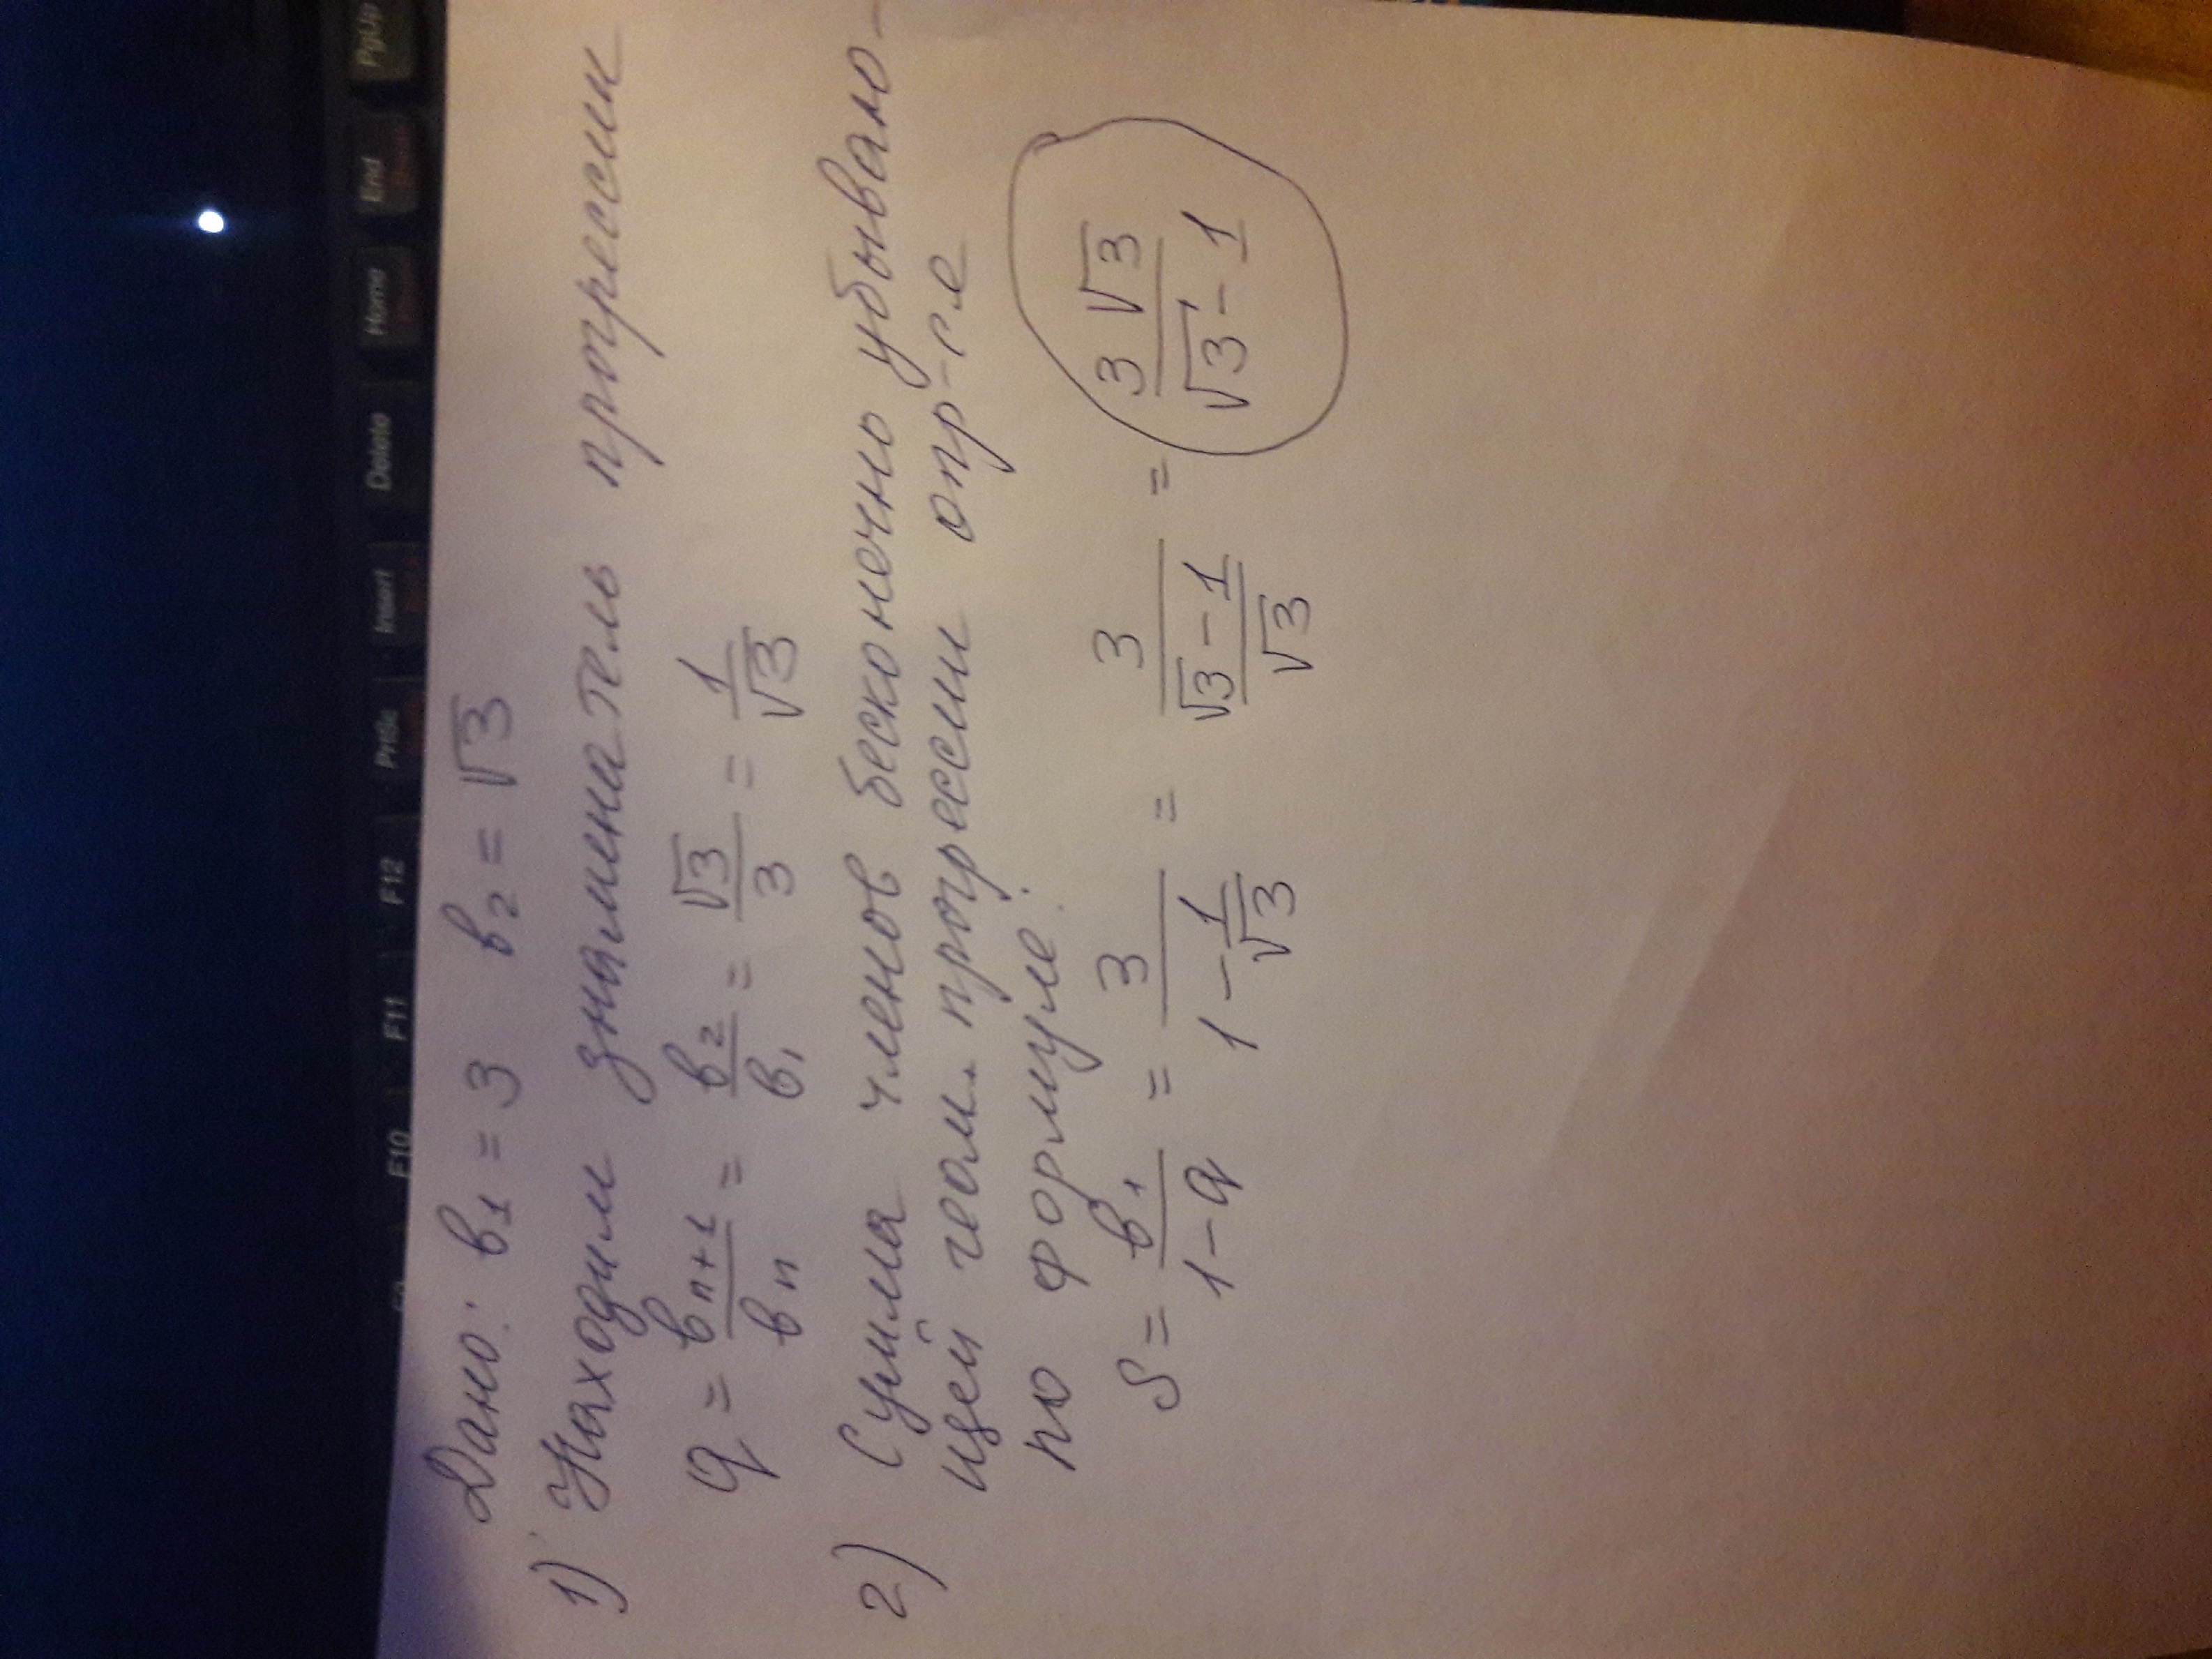 PgUp
End
Home
Delete
Insert
PrtSc
F12
F11
F10
Дано: b₁ = 3   b₂ = √3
1) Находим знаменатель прогрессии
q = bₙ₊₁/bₙ = b₂/b₁ = √3/3 = 1/√3
2) Сумма членов бесконечно убываю-
щей геом. прогрессии опр-ся
по формуле:
S = b₁/(1-q) = 3/(1 - 1/√3) = 3/((√3 - 1)/√3) = 3√3/(√3 - 1)